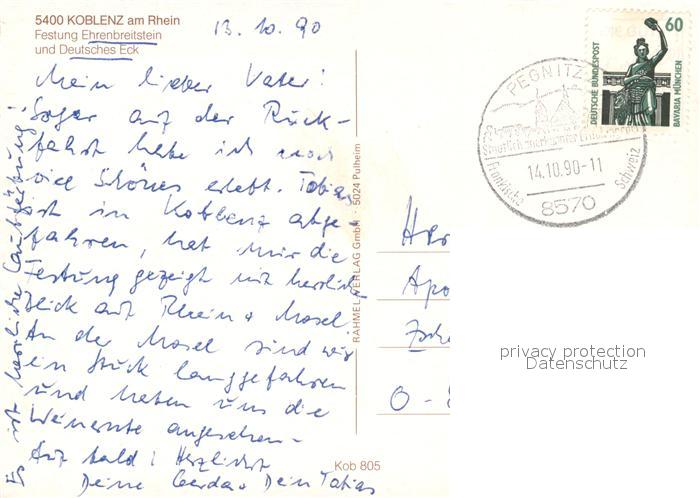 5400 KOBLENZ am Rhein
Festung Ehrenbreitstein
und Deutsches Eck
13. 10. 90
Mein lieber Vater!
Sogar auf der Rück-
fahrt habe ich noch
viel Schönes erlebt. Tobias
ist in Koblenz abge-
fahren, hat mir die
Festung gezeigt mit herrlich
Blick auf Rhein + Mosel.
An der Mosel sind wir
ein Stück langgefahren
und haben uns die
Weinernte angesehen -
Auf bald! Herzlichst
Deine Gerda + Dein Tobias
Es ist herrliche Laubfärbung!
RAHMEL-VERLAG GmbH · 5024 Pulheim
Kob 805
60
DEUTSCHE BUNDESPOST
BAVARIA MÜNCHEN
PEGNITZ
Fränkische Schweiz
14.10.90-11
8570
Her
Apo
O -
privacy protection
Datenschutz